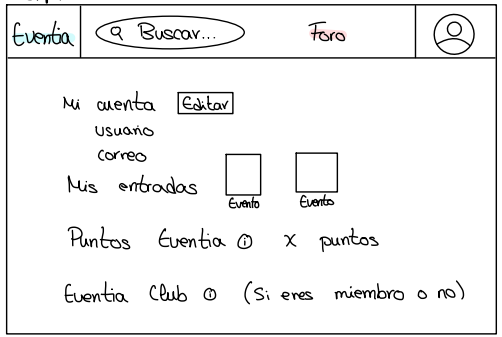 Eventia Buscar... Foro
Mi cuenta Editar
usuario
correo
Mis entradas
Evento Evento
Puntos Eventia i X puntos
Eventia Club i (Si eres miembro o no)